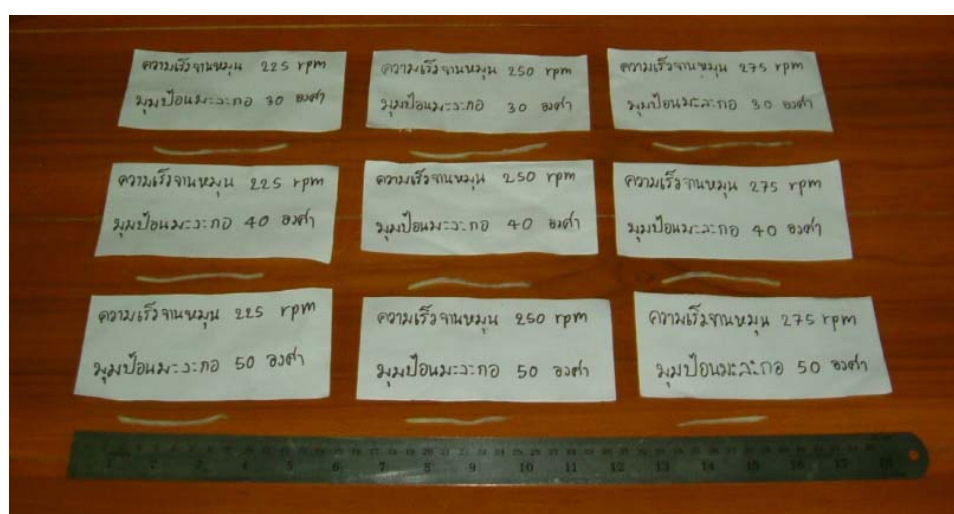 ความเร็วจานหมุน 225 rpm
มุมป้อนมะละกอ 30 องศา
ความเร็วจานหมุน 250 rpm
มุมป้อนมะละกอ 30 องศา
ความเร็วจานหมุน 275 rpm
มุมป้อนมะละกอ 30 องศา
ความเร็วจานหมุน 225 rpm
มุมป้อนมะละกอ 40 องศา
ความเร็วจานหมุน 250 rpm
มุมป้อนมะละกอ 40 องศา
ความเร็วจานหมุน 275 rpm
มุมป้อนมะละกอ 40 องศา
ความเร็วจานหมุน 225 rpm
มุมป้อนมะละกอ 50 องศา
ความเร็วจานหมุน 250 rpm
มุมป้อนมะละกอ 50 องศา
ความเร็วจานหมุน 275 rpm
มุมป้อนมะละกอ 50 องศา
1 2 3 4 5 6 7 8 9 10 11 12 13 14 15 16 17 18